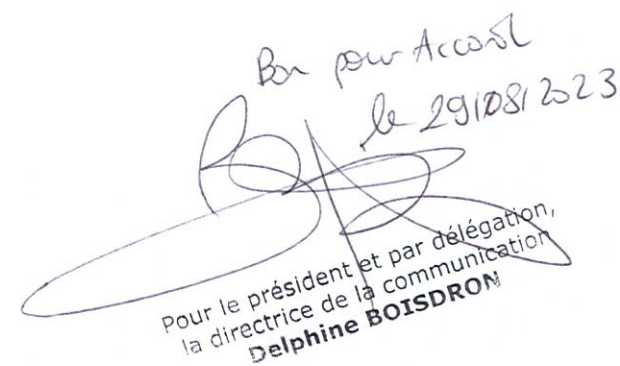 Bon pour Accord
le 29/08/2023
Pour le président et par délégation,
la directrice de la communication
Delphine BOISDRON